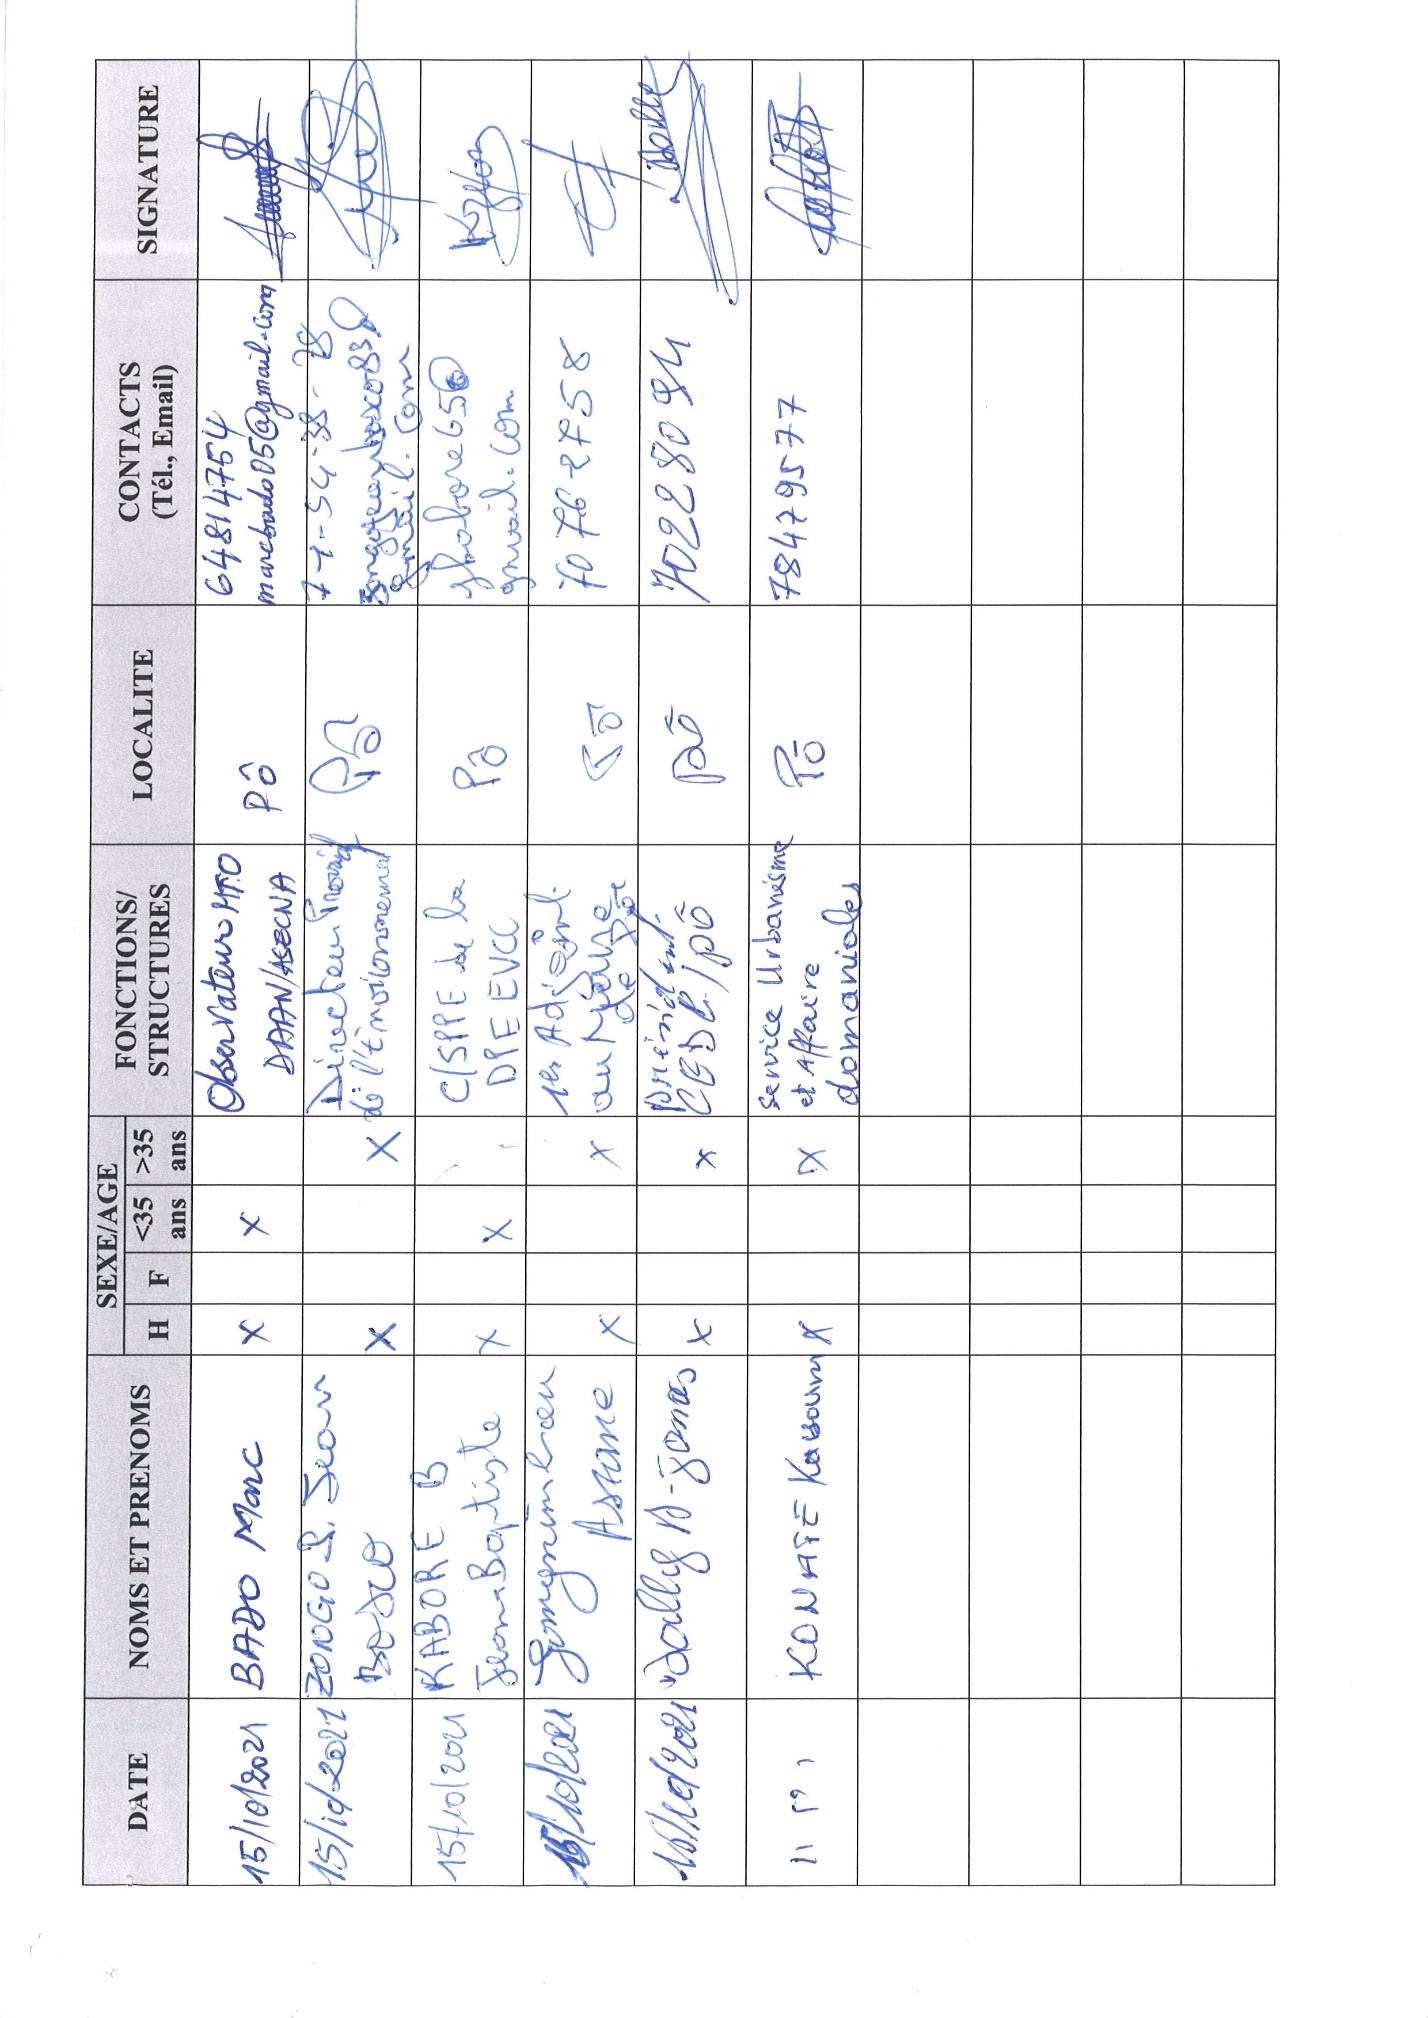 DATE
NOMS ET PRENOMS
SEXE/AGE
H
F
<35
ans
>35
ans
FONCTIONS/
STRUCTURES
LOCALITE
CONTACTS
(Tél., Email)
SIGNATURE
15/10/2021
BADO Marc
x
x
Observateur MTO
DAAN/ASECNA
Pô
64814754
marcbado05@gmail.com
15/10/2021
ZONGO S. Jean
Bosco
X
X
Directeur
de l'Environnement
Pô
gmail.com
15/10/2021
KABORE B
Jean Baptiste
x
X
C/SPPE de la
DPEEVCC
Pô
gmail.com
15/10/2021
Assane
x
x
1er Adjoint
au Maire
de Pô
Pô
70762758
16/10/2021
Dally A-Jonas
x
x
Président
/pô
pô
70228094
" " "
KONATE Kassoum
x
x
Service Urbanisme
et Affaire
domaniales
Pô
78479577